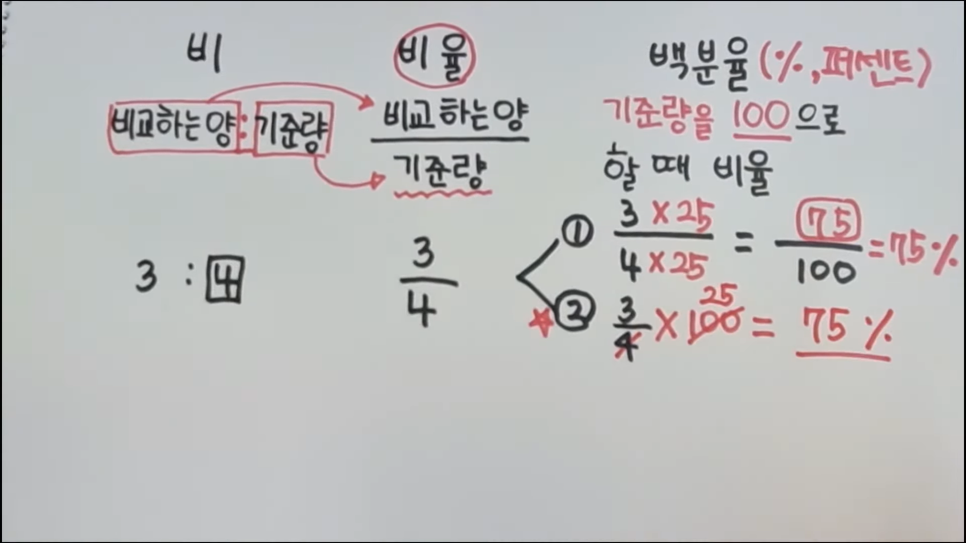 비
비교하는양:기준량
3 : 4
비율
비교하는양
기준량
3
4
백분율(%,퍼센트)
기준량을 100으로
할 때 비율
① 3 × 25 / 4 × 25 = 75 / 100 = 75%
② 3 / 4 × 100 25 = 75%